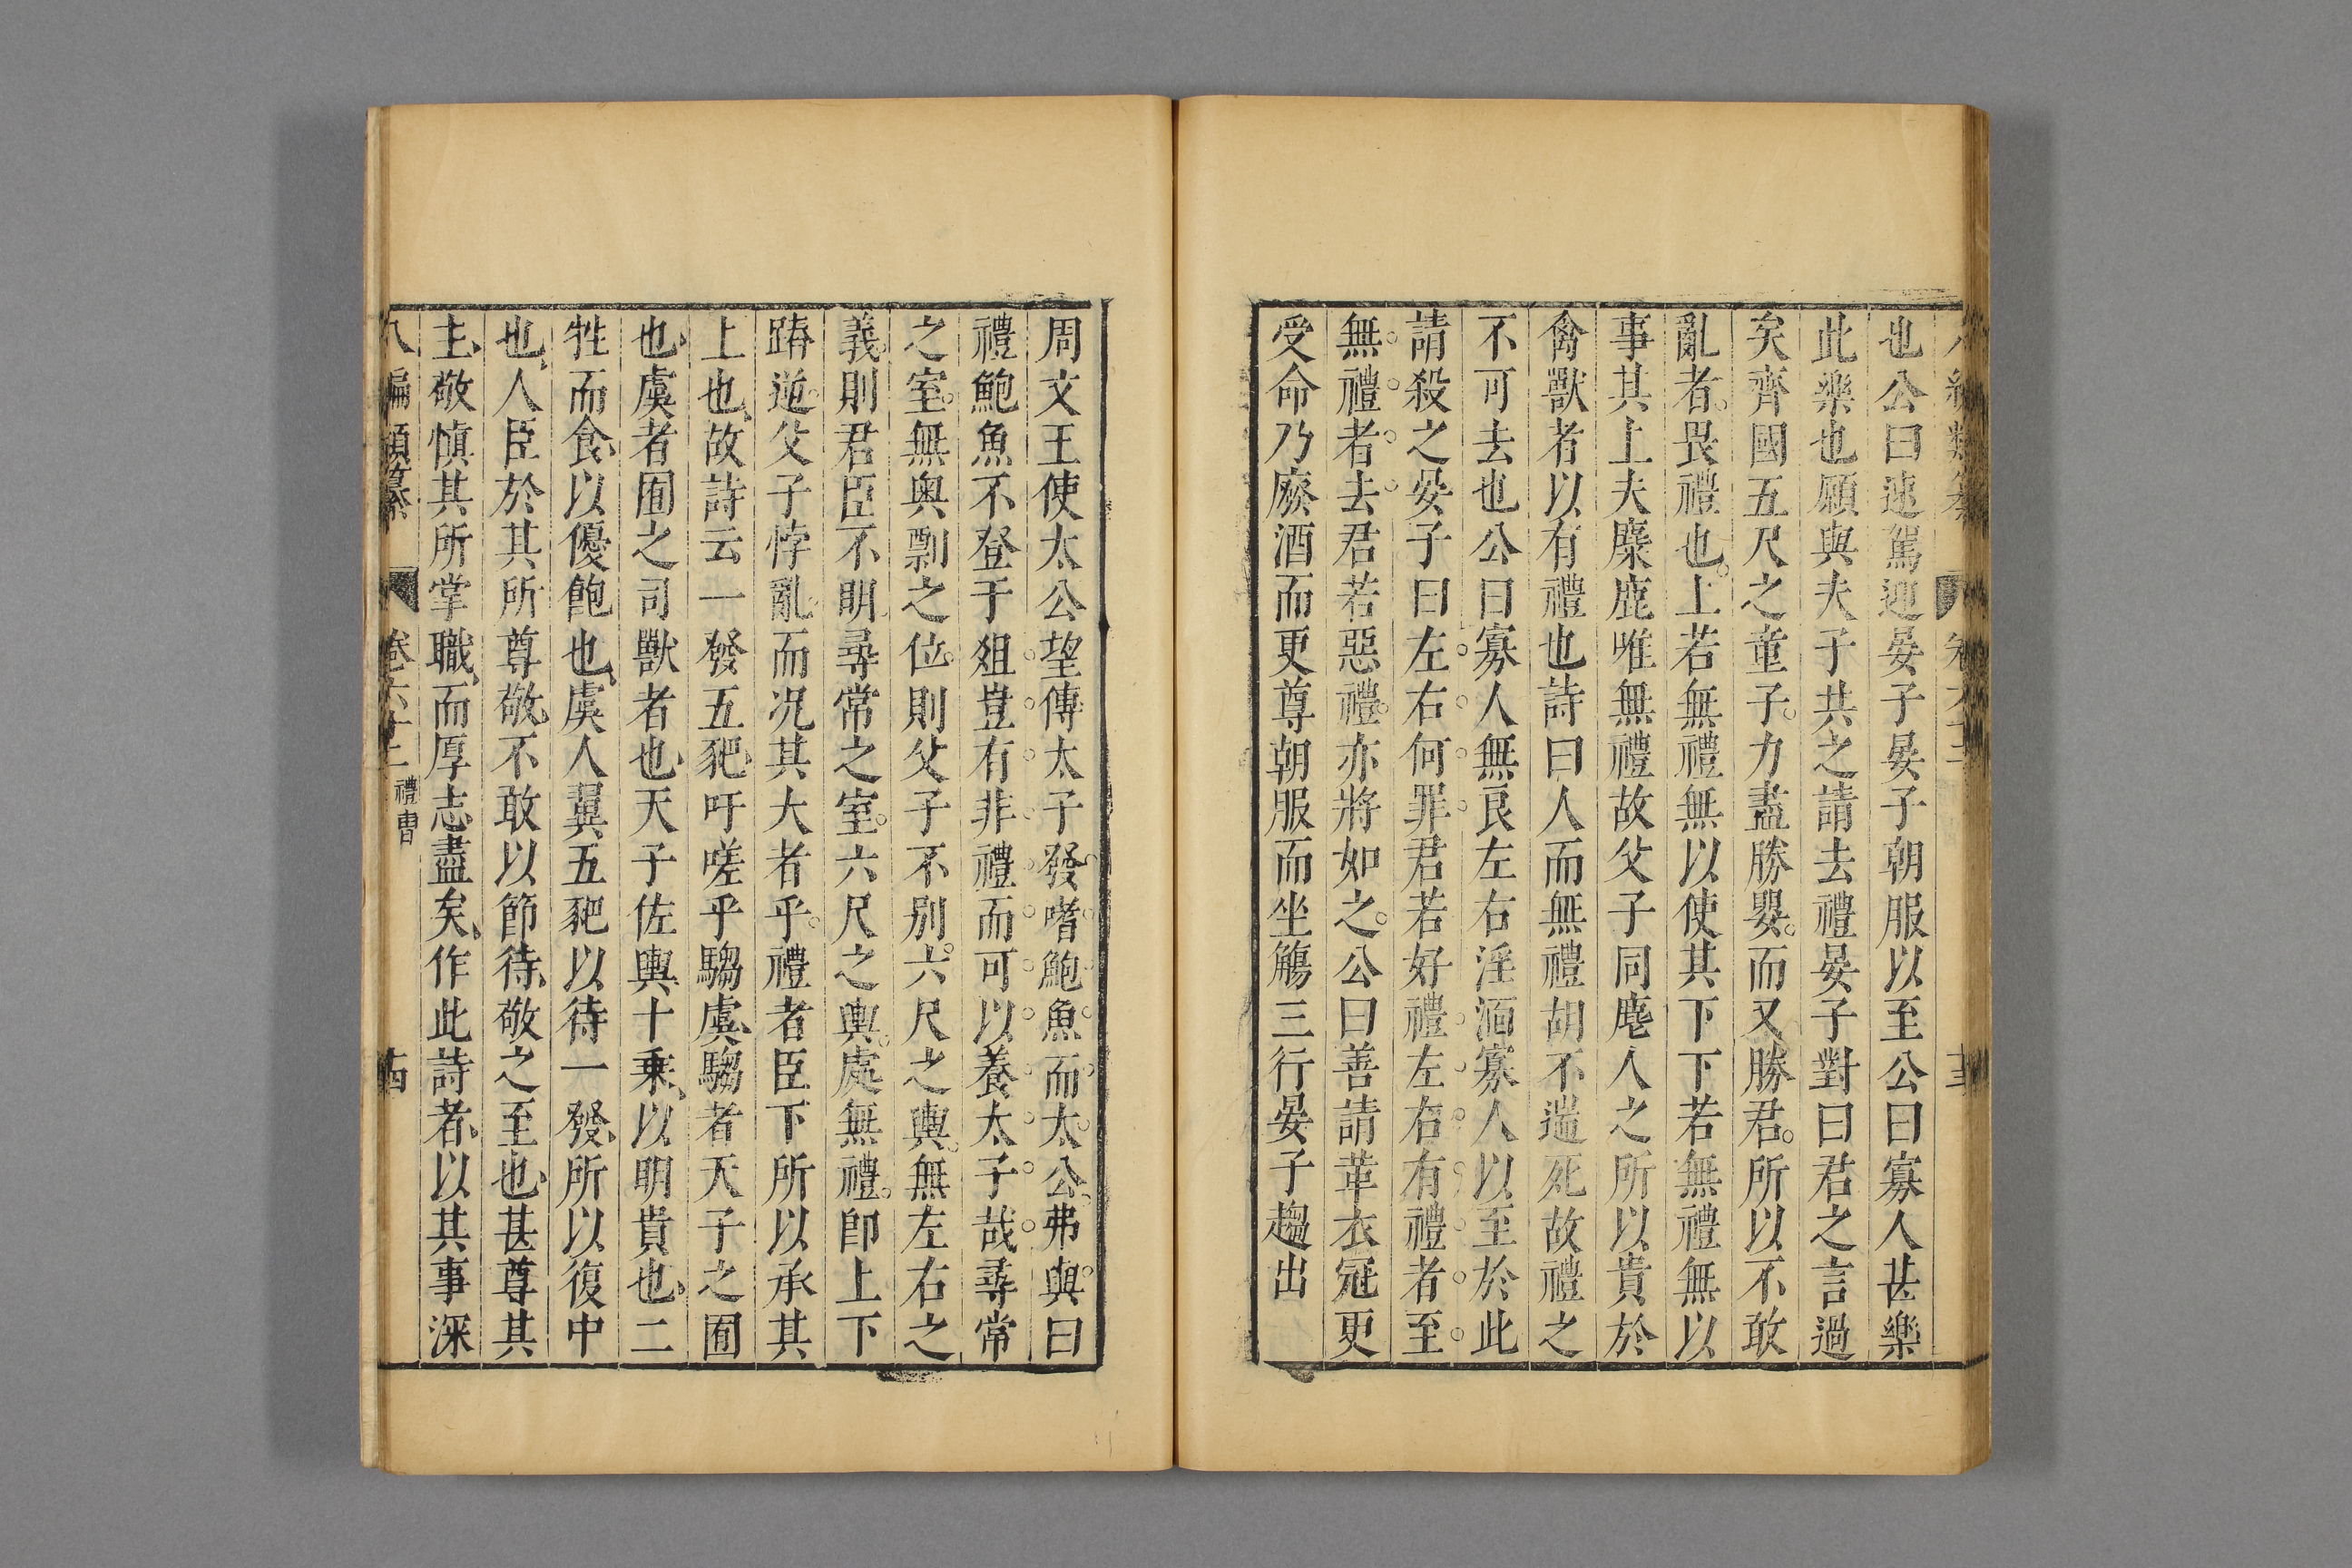 也公曰速駕迎晏子晏子朝服以至公曰寡人甚樂
此樂也願與夫子共之請去禮晏子對曰君之言過
矣齊國五尺之童子力盡勝嬰而又勝君所以不敢
亂者畏禮也上若無禮無以使其下下若無禮無以
事其上夫麋鹿唯無禮故父子同麀人之所以貴於
禽獸者以有禮也詩曰人而無禮胡不遄死故禮之
不可去也公曰寡人無良左右淫湎寡人以至於此
請殺之晏子曰左右何罪君若好禮左右有禮者至
無禮者去君若惡禮亦將如之公曰善請革衣冠更
受命乃廢酒而更尊朝服而坐觴三行晏子趨出
周文王使太公望傅太子發嗜鮑魚而太公弗與曰
禮鮑魚不登于俎豈有非禮而可以養太子哉尋常
之室無奥剽之位則父子不別六尺之輿無左右之
義則君臣不明尋常之室六尺之輿處無禮即上下
踳逆父子悖亂而况其大者乎禮者臣下所以承其
上也故詩云一發五豝吁嗟乎騶虞騶者天子之囿
也虞者囿之司獸者也天子佐輿十乗以明貴也二
牲而食以優飽也虞人翼五豝以待一發所以復中
也人臣於其所尊敬不敢以節待敬之至也甚尊其
主敬慎其所掌職而厚志盡矣作此詩者以其事深
八編類纂 卷六十二 禮曹 十四